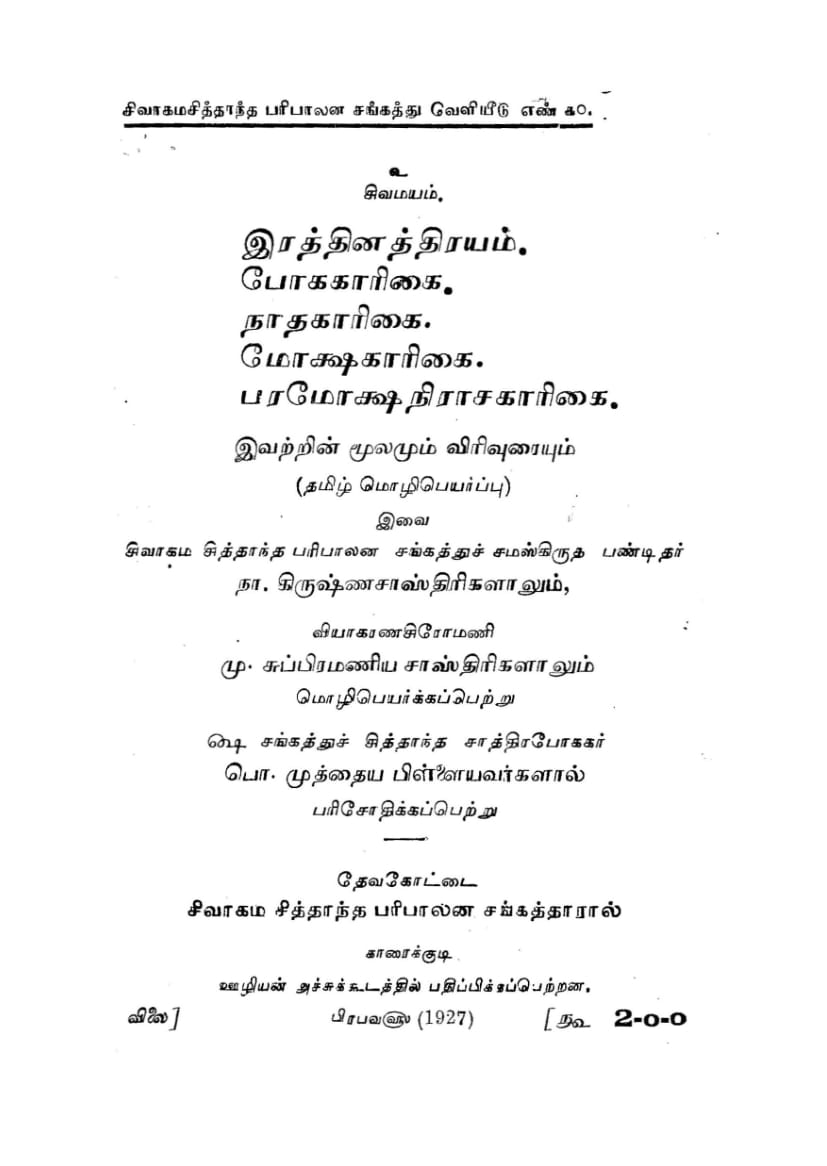 சிவாகமசித்தாந்த பரிபாலன சங்கத்து வெளியீடு எண் ௧௦.
உ
சிவமயம்.
இரத்தினத்திரயம்.
போககாரிகை.
நாதகாரிகை.
மோக்ஷகாரிகை.
பரமோக்ஷநிராசகாரிகை.
இவற்றின் மூலமும் விரிவுரையும்
(தமிழ் மொழிபெயர்ப்பு)
இவை
சிவாகம சித்தாந்த பரிபாலன சங்கத்துச் சமஸ்கிருத பண்டிதர்
நா. கிருஷ்ணசாஸ்திரிகளாலும்,
வியாகரணசிரோமணி
மு. சுப்பிரமணிய சாஸ்திரிகளாலும்
மொழிபெயர்க்கப்பெற்று
௸ சங்கத்துச் சித்தாந்த சாத்திரபோககர்
பொ. முத்தைய பிள்ளையவர்களால்
பரிசோதிக்கப்பெற்று
தேவகோட்டை
சிவாகம சித்தாந்த பரிபாலன சங்கத்தாரால்
காரைக்குடி
ஊழியன் அச்சுக்கூடத்தில் பதிப்பிக்கப்பெற்றன.
விலை] பிரபவ௵ (1927) [ரூ 2-0-0